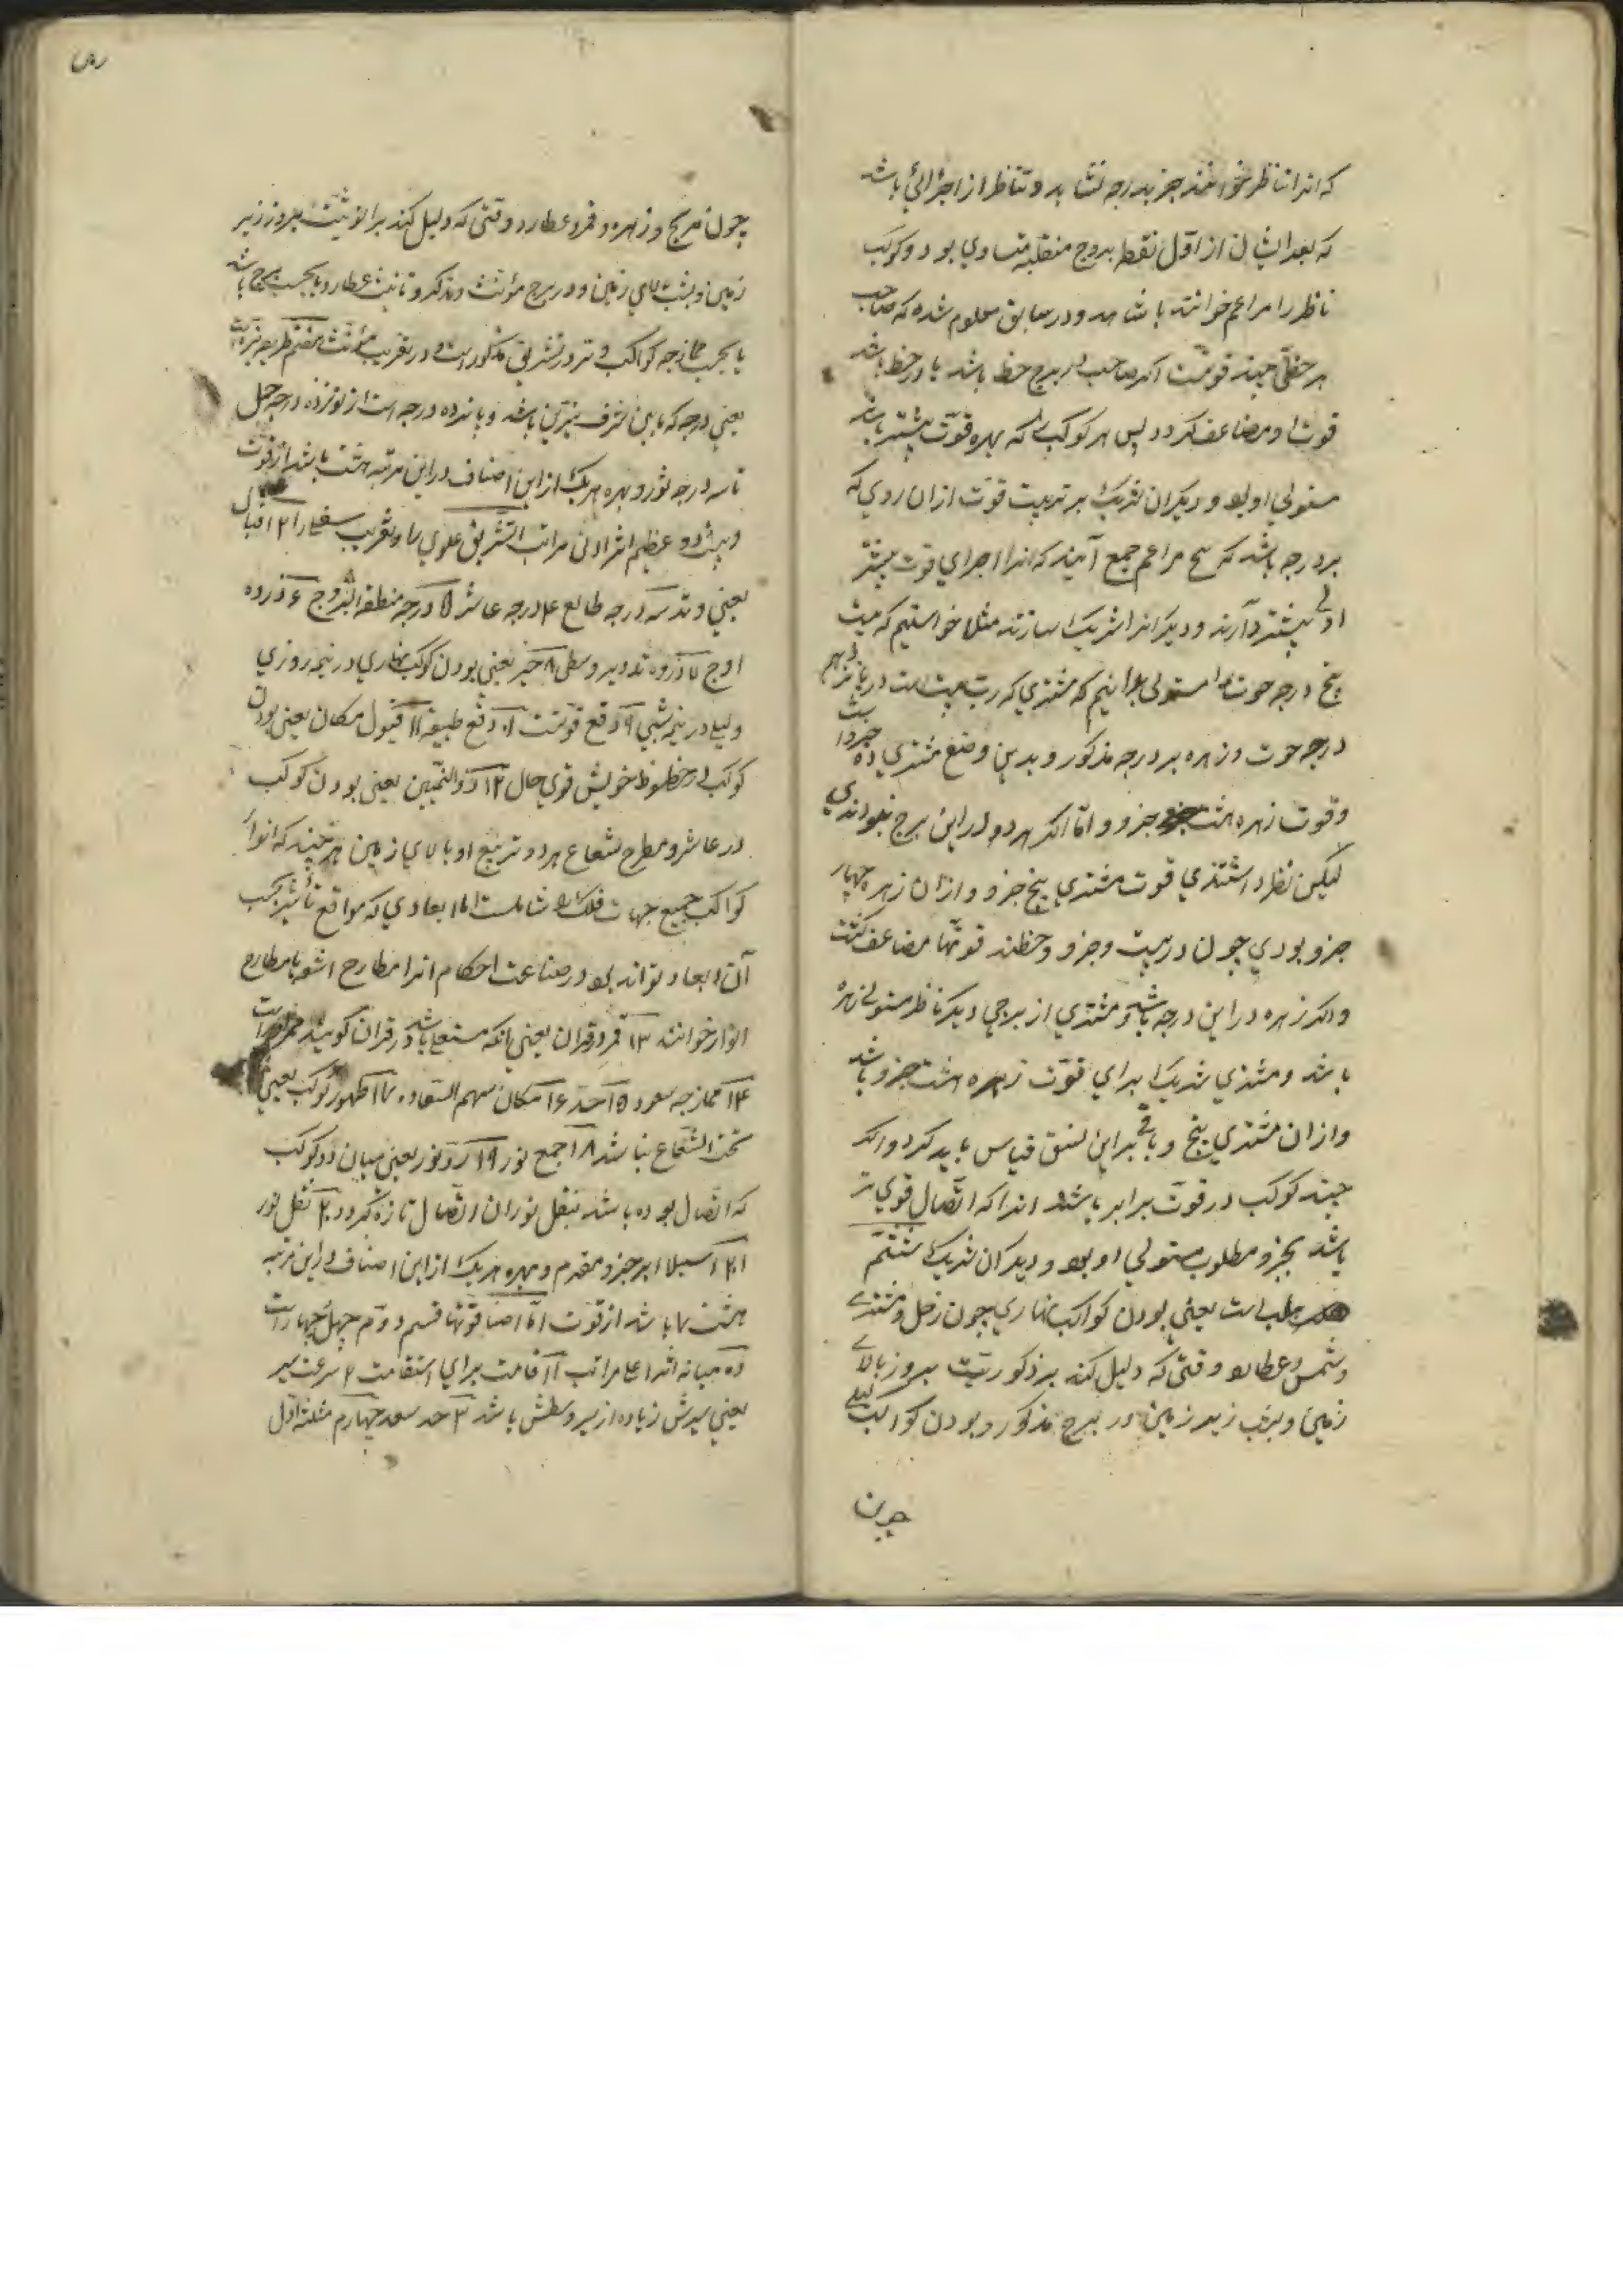 که انرا تناظر خوانند جز بدرجه نشاید و تناظر از اجزائی باشد
که بعد ایشان از اول نقطه بروج منقلبه متساوی بود و کوکب
ناظر را مزاعم خوانند باشد و در سابق معلوم شده که صاحب
هر حظی چند قوتست اگر صاحب در برج حظ باشد یا در حظ باشد
قوت او مضاعف کردد پس هر کوکب که بهره قوت بیشتر باشد
مستولی او بود و دیکران شریک بر ترتیب قوت ازان روی که
بر درجه باشد که سح مزاعم جمع آیند که انرا اجزای قوت بیشتر
اولی بیشتر دارند و دیکرانرا شریک سازند مثلا خواستیم که بیت
پنج درجه حوت را مستولی بدانیم که مشتری که رب بیت است در پانزدهم
درجه حوت و زهره بر درجه مذکور و بدین وضع مشتری ده جزو است
و قوت زهره هشت جزو و اما اکر هر دو در این برج نبودندی
لیکن نظر داشتندی قوت مشتری پنج جزو و ازان زهره چهار
جزو بودی چون در بیت و جزو و حظند قوتها مضاعف کشت
و اکر زهره در این درجه باشد و مشتری از برجی دیکر ناظر مستولی زهره
باشد و مشتری شریک برای قوت زهره هشت جزو باشد
و ازان مشتری پنج و باقی براین نسق قیاس باید کرد و اکر
چند کوکب در قوت برابر باشند انرا که اتصال قوی تر
باشد بجزو مطلوب مستولی او بود و دیکران شریک ششم
حلب است یعنی بودن کواکب نهاری چون زحل و مشتری
و شمس و عطارد وقتی که دلیل کند بر ذکوریت بروز بالای
زمین و بشب زیر زمین در برج مذکور و بودن کواکب لیلی
چون
چون مریخ و زهره و قمر و عطارد وقتی که دلیل کند بر انوثیت بروز زیر
زمین و بشب بالای زمین و در برج مؤنث و تذکیر و تانیث عطارد یا بحسب برج باشد
یا بحسب ممازجه کواکب و تر و تشریق مذکور است و در تغریب مؤنث هفتم طریقه نیره است
یعنی درجه که مابین شرف نیرین باشد و پانزده درجه است از نوزده درجه حمل
تا سه درجه ثور و بهره هر یک از این اصناف در این مرتبه هشت باشد از قوت
و بیشدو عظیم اثر ادن مراتب ا تشریق علوی را و تغریب سفلی را ۲ اقبال
یعنی وتد ۳ درجه طالع ۴ درجه عاشر ۵ درجه منطقة البروج ۶ ذروه
اوج ۷ ذروه تدویر وسطی ۸ حیز یعنی بودن کوکب نهاری در نیمه روزی
و لیلی در نیمه شبی ۹ دفع قوتست ۱۰ دفع طبیعه ۱۱ قبول مکان یعنی بودن
کوکب در حظوظ خویش قوی حال ۱۲ ذو الیمینین یعنی بودن کوکب
در عاشر و مطرح شعاع هر دو تربیع او بالای زمین هر چند که انوار
کواکب جمیع جهات فلک را شاملست اما ابعادی که مواقع تأثیر بحسب
آن ابعاد تواند بود در صناعت احکام انرا مطارح اشعه یا مطارح
انوار خوانند ۱۳ قمر و قران یعنی بانکه مستعلی باشد در قران کویند
۱۴ ممازجه سعود ۱۵ حد ۱۶ مکان سهم السعاده ۱۷ ظهور کوکب یعنی
تحت الشعاع نباشد ۱۸ جمع نور ۱۹ رد نور یعنی میان دو کوکب
که اتصال بوده باشد بنقل نور ان اتصال تازه کردد ۲۰ نقل نور
۲۱ استیلا بر جزو مقدم و بهره هر یک از این اصناف در این مرتبه
هشت باشد از قوت اما اضافتها قسم دوم چهل چهار است
ده میانه اند اعلا مراتب ا اقامت برای استقامت ۲ سرعت سیر
یعنی سیرش زیاده از سیر وسطش باشد ۳ حد سعد چهارم مثلثه اول